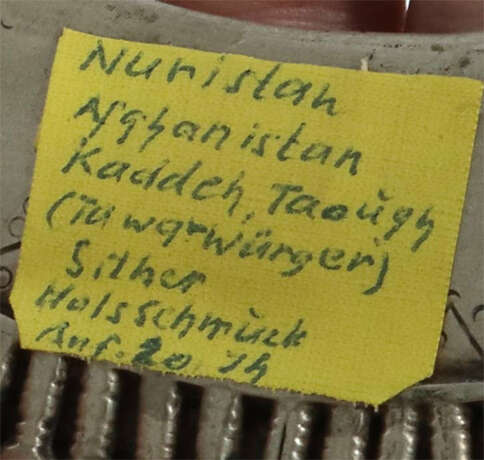 Nuristan
Afghanistan
Kaddeh, Taoŭgh
(Tawq=Würger)
Silber
Halsschmuck
Anf. 20. Jh